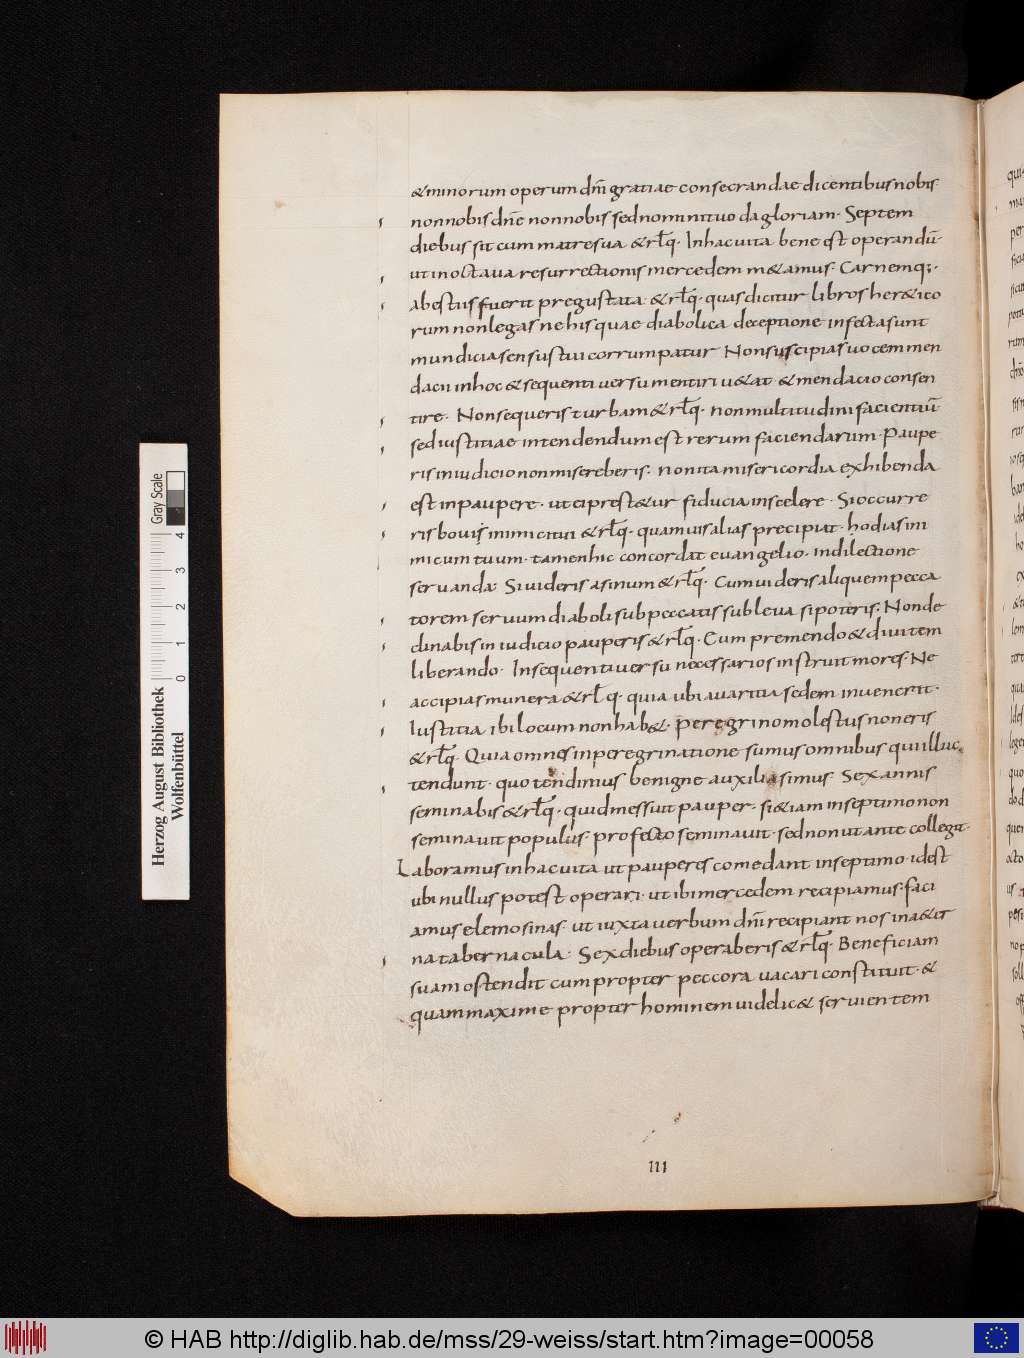 &minorum operum dñi gratiae consecrandae dicentibus nobis·
non nobis dñe non nobis sed nomini tuo da gloriam· Septem
diebus sit cum matre sua &rl̃q· In hac uita bene est operandū·
ut in octaua resurrectionis mercedem m&amus· Carnem q;·
abestiis fuerit pregustata &rl̃q· quas dicitur libros her&ico
rum non legas ne his quae diabolica deceptione infecta sunt
mundicia sensus tui corrumpatur Non suscipias uocem men
dacii in hoc & sequenti uersu mentiri u&at & mendacio consen
tire· Non sequeris turbam &rl̃q· non multitudini facientiū
sed iustitiae intendendum est rerum faciendarum· Paupe
ris in iudicio non misereberis· non ita misericordia exhibenda
est in paupere· ut ei prest&ur fiducia in scelere· Si occurre
ris boui inimici tui &rl̃q· quamuis alias precipiat· hodias ini
micum tuum· tamen hic concordat euangelio· in dilectione
seruanda· Si uideris asinum &rl̃q· Cum uideris aliquem pecca
torem seruum diaboli sub peccatis subleua si poteris· Non de
clinabis in iudicio pauperis &rl̃q· Cum premendo & diuitem
liberando· In sequenti uersu necessarios instruit mores· Ne
accipias munera &rl̃q· quia ubi auaritia sedem inuenerit·
Iustitia ibi locum non hab&· peregrino molestus non eris
&rl̃q· Quia omnes in peregrinatione sumus omnibus qui illuc
tendunt· quo tendimus benigne auxiliasimus· Sex annis
seminabis &rl̃q· quid messuit pauper· si &iam in septimo non
seminauit populus· profecto seminauit· sed non ut ante collegit·
Laboramus in hac uita ut pauperes comedant in septimo· idest
ubi nullus potest operari· ut ibi mercedem recipiamus· faci
amus elemosinas· ut iuxta uerbum dñi recipiant nos in a&er
na tabernacula· Sex diebus operaberis &rl̃q· Beneficiam
suam ostendit cum propter peccora uacari constituit· &
quam maxime propter hominem uidelic& seruientem
III
Herzog August Bibliothek
Wolfenbüttel
Gray Scale
0 1 2 3 4
© HAB http://diglib.hab.de/mss/29-weiss/start.htm?image=00058